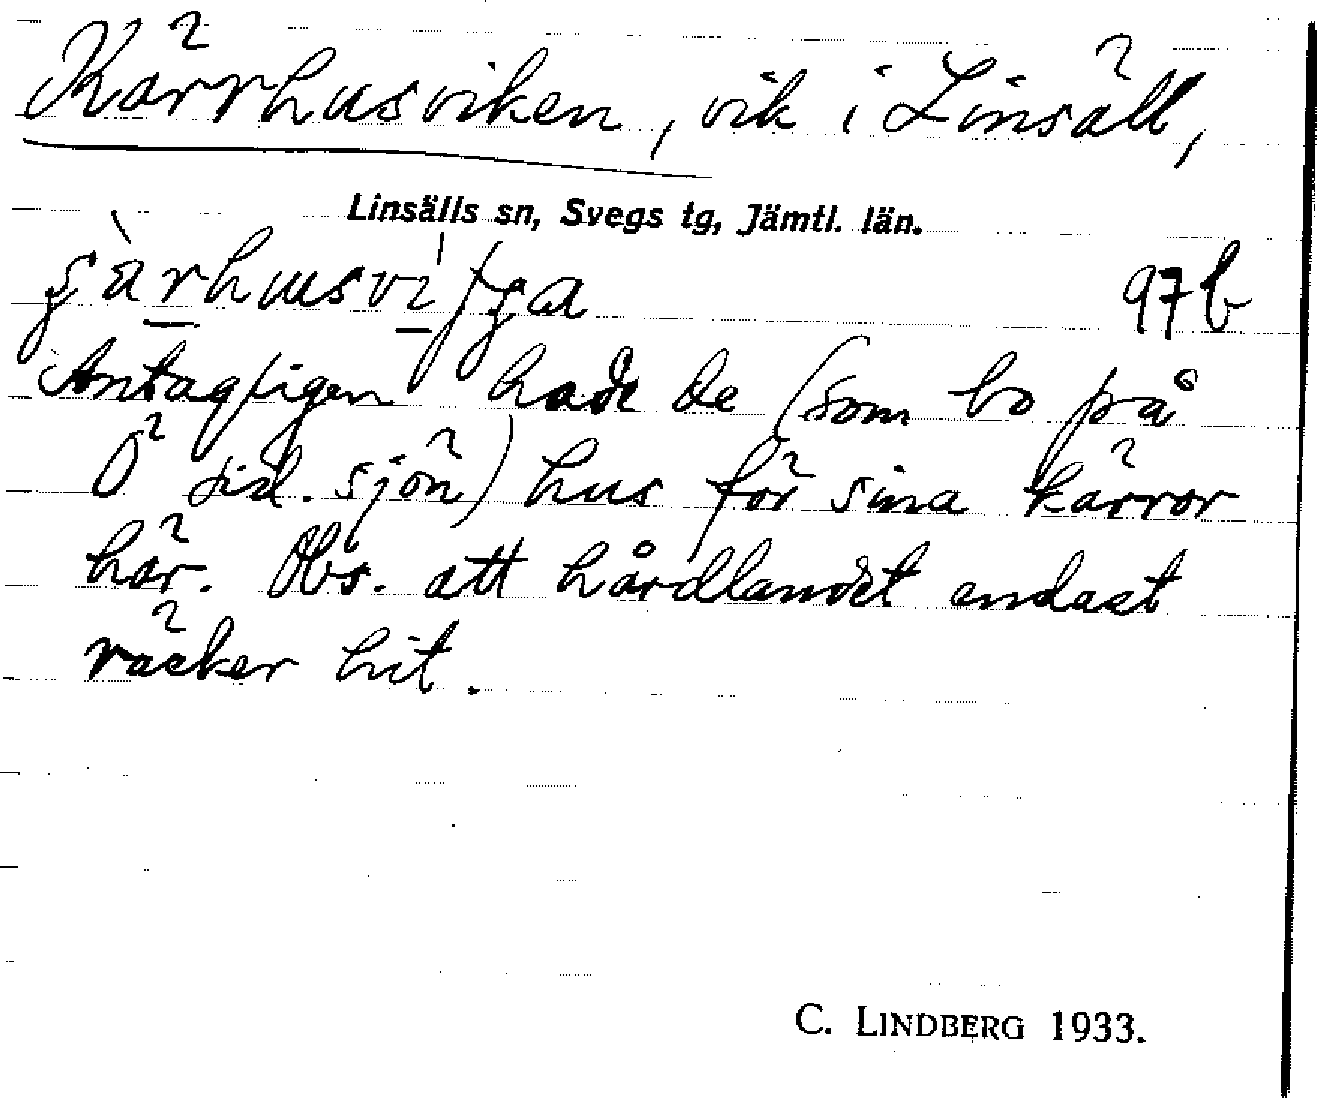 Kärrhusviken, vik i Linsäll,
Linsälls sn, Svegs tg, Jämtl. län.
97b
Antagligen hade de (som bo på
Ö sid. sjön) hus för sina kärror
här. Obs. att hårdlandet endast
räcker hit.
C. LINDBERG 1933.